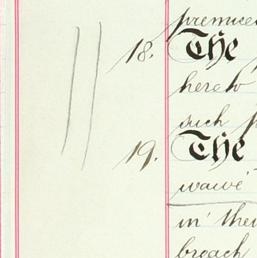 premises
18. The
hereto
such
19. The
waive
in their
breach